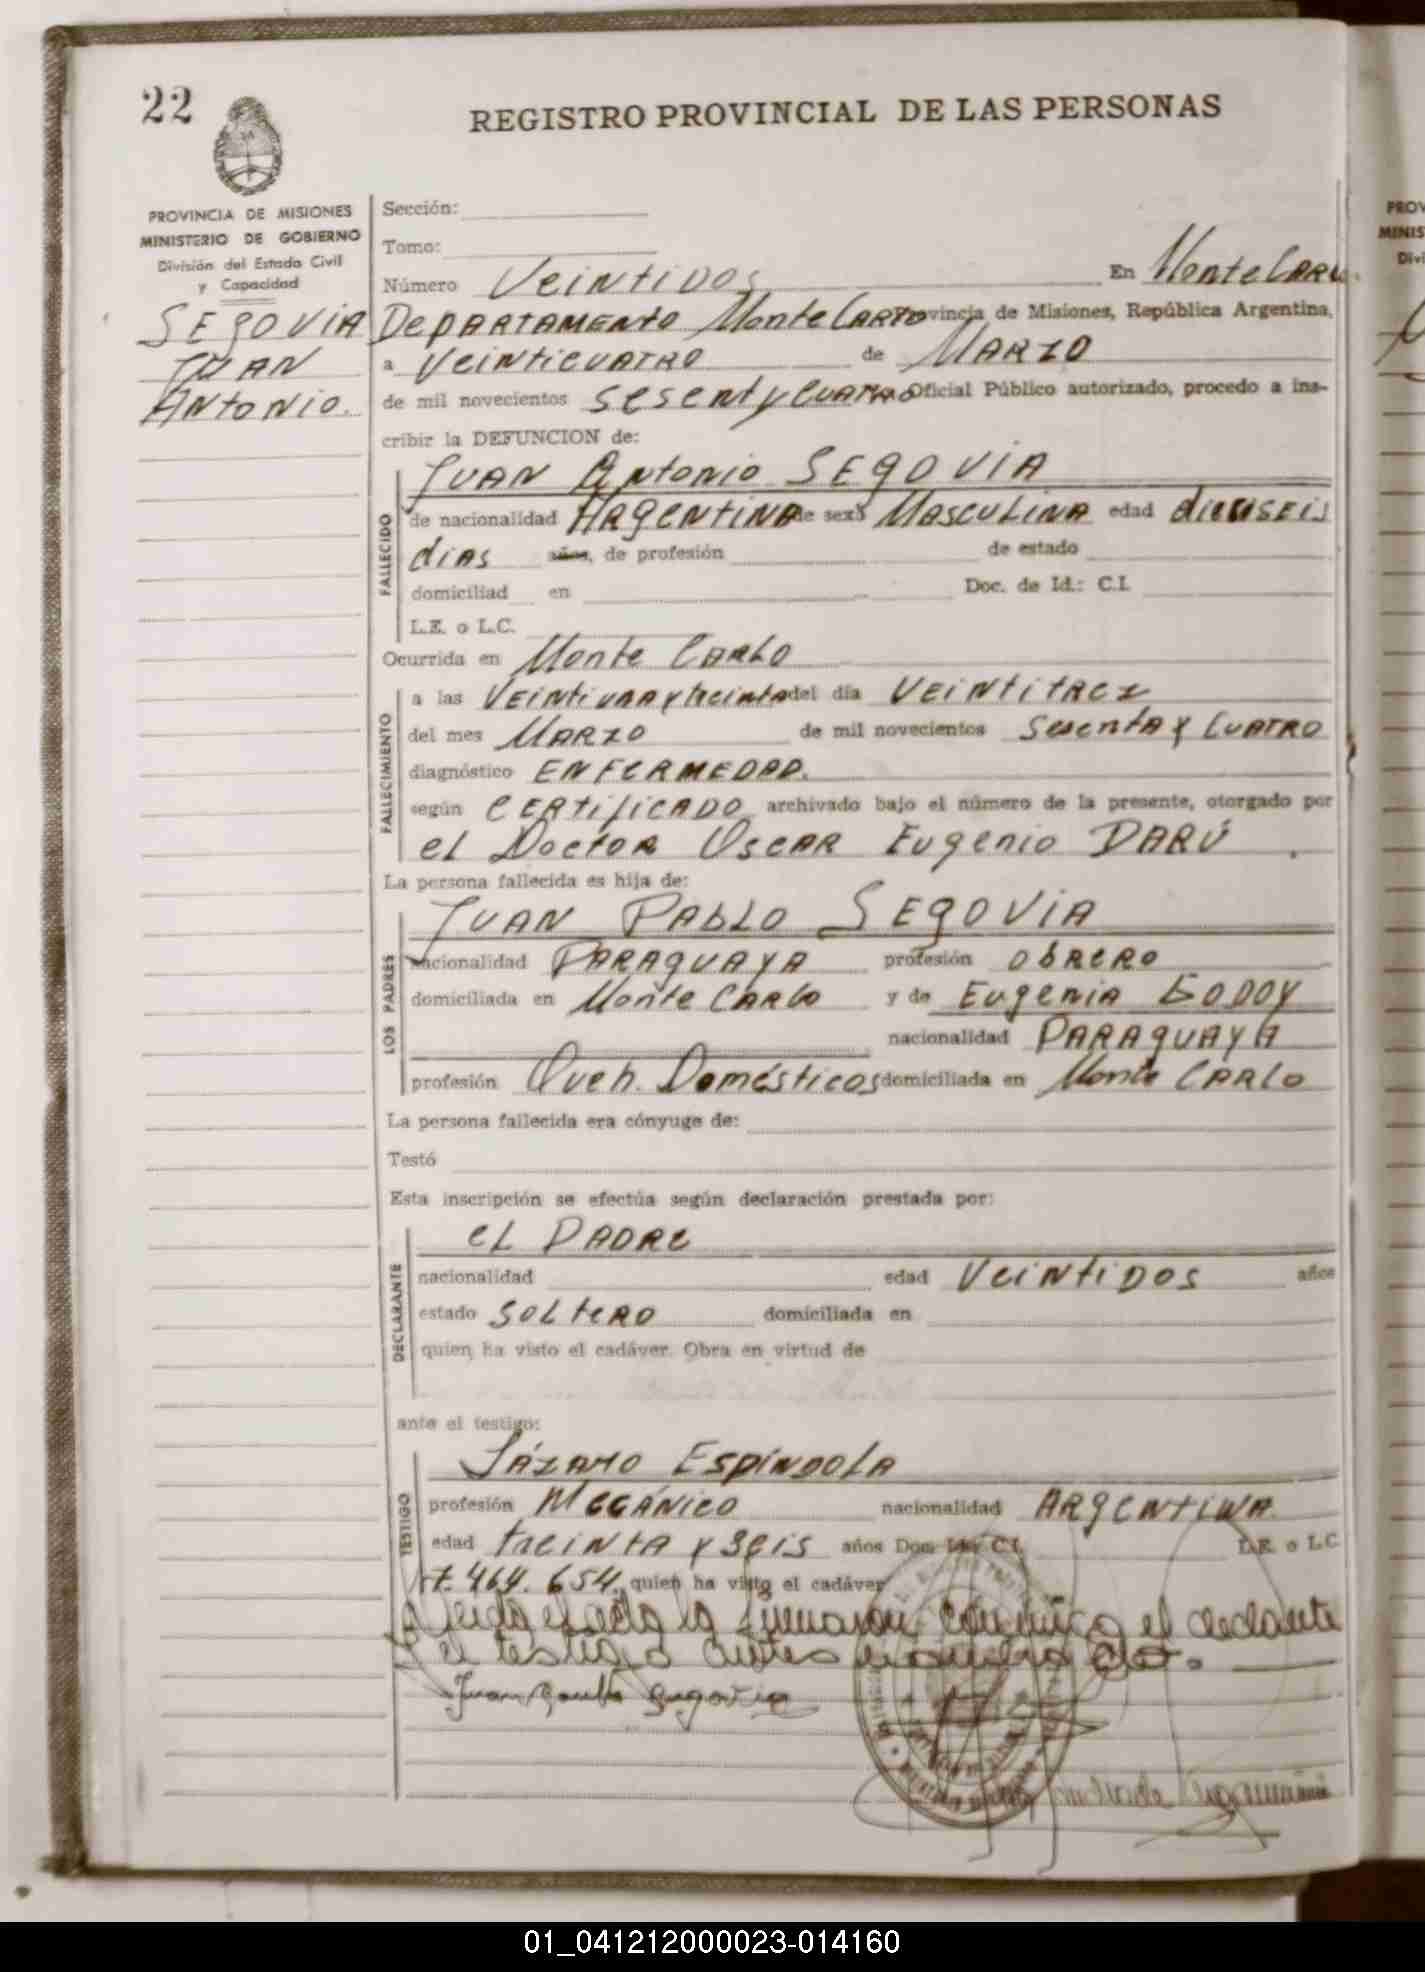 22
REGISTRO PROVINCIAL DE LAS PERSONAS
PROVINCIA DE MISIONES
MINISTERIO DE GOBIERNO
División del Estado Civil
y Capacidad
SEGOVIA
JUAN
ANTONIO.
Sección:
Tomo:
Número VEINTIDOS En Monte CARLO
DEPARTAMENTO Monte CARLO Provincia de Misiones, República Argentina,
a VEINTICUATRO de MARZO
de mil novecientos sesent y CUATRO Oficial Público autorizado, procedo a ins-
cribir la DEFUNCION de:
FALLECIDO
JUAN Antonio SEGOVIA
de nacionalidad ARGENTINA de sexo MASCULINA edad dieciSEIS
dias años, de profesión de estado
domiciliad en Doc. de Id.: C.I.
L.E. o L.C.
Ocurrida en Monte CARLO
FALLECIMIENTO
a las VEINTIUNA y treinta del día VEINTITREZ
del mes MARZO de mil novecientos SesentA y CUATRO
diagnóstico ENFERMEDAD.
según CERTIFICADO archivado bajo el número de la presente, otorgado por
el Doctor OSCAR Eugenio DARÚ.
La persona fallecida es hija de:
LOS PADRES
JUAN PABLO SEGOVIA
nacionalidad PARAGUAYA profesión OBRERO
domiciliada en Monte CARLO y de Eugenia GODOY
nacionalidad PARAGUAYA
profesión Queh. Domésticos domiciliada en Monte CARLO
La persona fallecida era cónyuge de:
Testó
Esta inscripción se efectúa según declaración prestada por:
DECLARANTE
EL PADRE
nacionalidad edad VEINTIDOS años
estado SOLTERO domiciliada en
quien ha visto el cadáver. Obra en virtud de
ante el testigo:
TESTIGO
LÁZARO ESPÍNDOLA
profesión MECÁNICO nacionalidad ARGENTINA
edad treINTA y SEIS años Doc. Id.: C.I. L.E. o L.C.
7.464.654. quien ha visto el cadáver
Leida el acta la firmaron conmigo el declarante
y el testigo antes nombrado.
Juan Segovia
PROV
MINIS
Divi
01_041212000023-014160